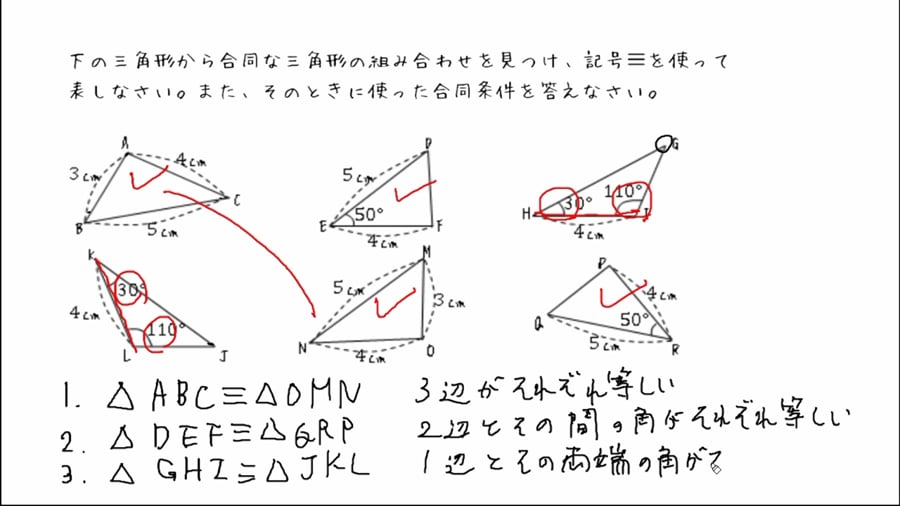 下の三角形から合同な三角形の組み合わせを見つけ、記号≡を使って
表しなさい。また、そのときに使った合同条件を答えなさい。
A
3cm
4cm
B
C
5cm
D
5cm
50°
E
F
4cm
G
110°
H
30°
I
4cm
K
30°
4cm
110°
L
J
M
5cm
3cm
N
O
4cm
P
4cm
Q
50°
R
5cm
1. △ ABC≡△OMN 3辺がそれぞれ等しい
2. △ DEF≡△QRP 2辺とその間の角がそれぞれ等しい
3. △ GHI≡△JKL 1辺とその両端の角がそ